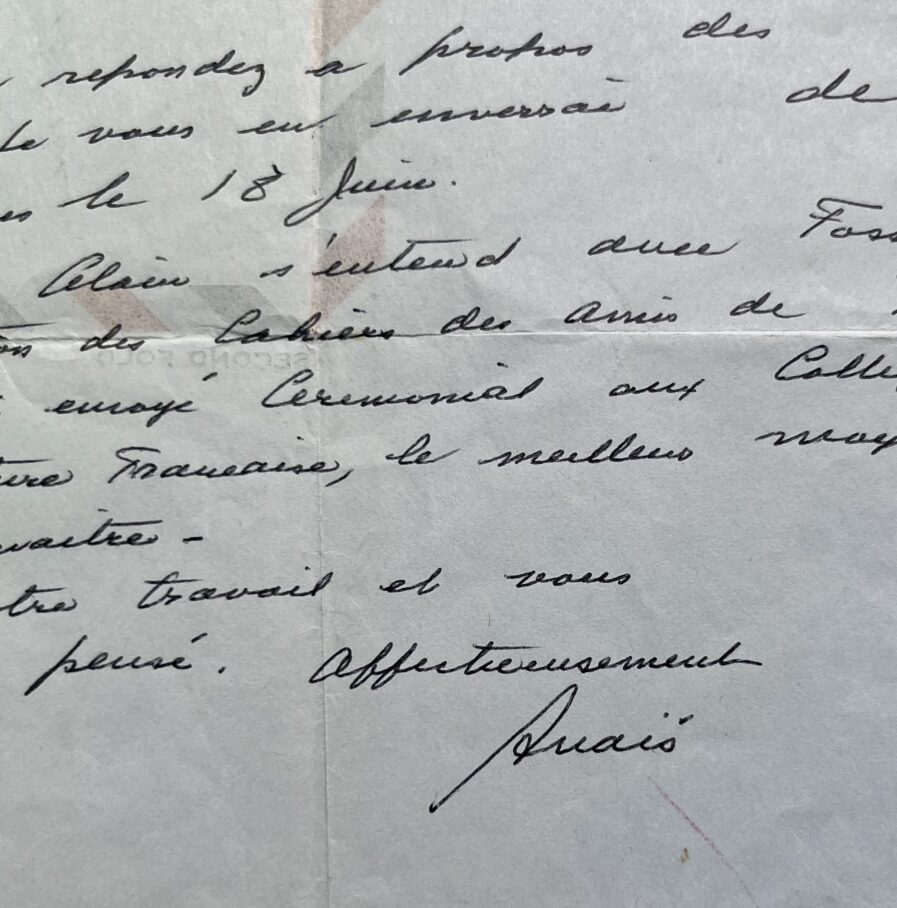 repondez a propos des
vous en enverrai de
le 18 Juin.
Alain s'entend avec Foss
des Cahiers des Amis de
envoyé Ceremonial aux Colle
Francaise, le meilleur moy
naitre -
tre travail et vous
pensé. Affectueusement
Anaïs
SECOND FOLD